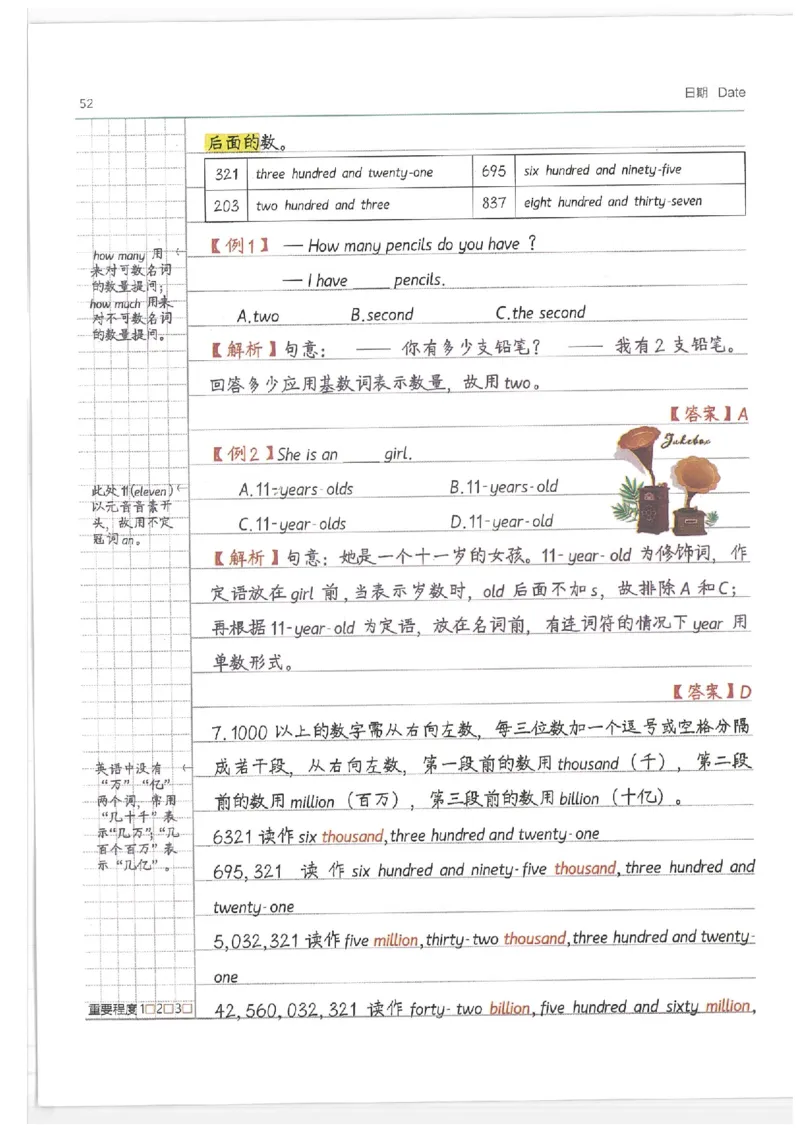 52
日期 Date
后面的数。
321 three hundred and twenty-one 695 six hundred and ninety-five
203 two hundred and three 837 eight hundred and thirty-seven
how many 用
来对可数名词
的数量提问；
how much 用来
对不可数名词
的数量提问。
【例1】 — How many pencils do you have ?
— I have _____ pencils.
A.two B.second C.the second
【解析】句意： —— 你有多少支铅笔？ —— 我有2支铅笔。
回答多少应用基数词表示数量，故用two。
【答案】A
Jukebox
【例2】She is an _____ girl.
此处11(eleven)
以元音音素开
头，故用不定
冠词an。
A.11-years-olds B.11-years-old
C.11-year-olds D.11-year-old
【解析】句意：她是一个十一岁的女孩。11-year-old 为修饰词，作
定语放在girl 前，当表示岁数时，old 后面不加s，故排除A和C；
再根据11-year-old 为定语，放在名词前，有连词符的情况下year 用
单数形式。
【答案】D
7.1000以上的数字需从右向左数，每三位数加一个逗号或空格分隔
成若干段，从右向左数，第一段前的数用thousand（千），第二段
前的数用million（百万），第三段前的数用billion（十亿）。
英语中没有
“万”“亿”
两个词，常用
“几十千”表
示“几万”；“几
百个百万”表
示“几亿”。
6321读作six thousand,three hundred and twenty-one
695,321 读作 six hundred and ninety-five thousand,three hundred and
twenty-one
5,032,321读作five million,thirty-two thousand,three hundred and twenty-
one
42,560,032,321 读作 forty-two billion,five hundred and sixty million,
重要程度1□2□3□